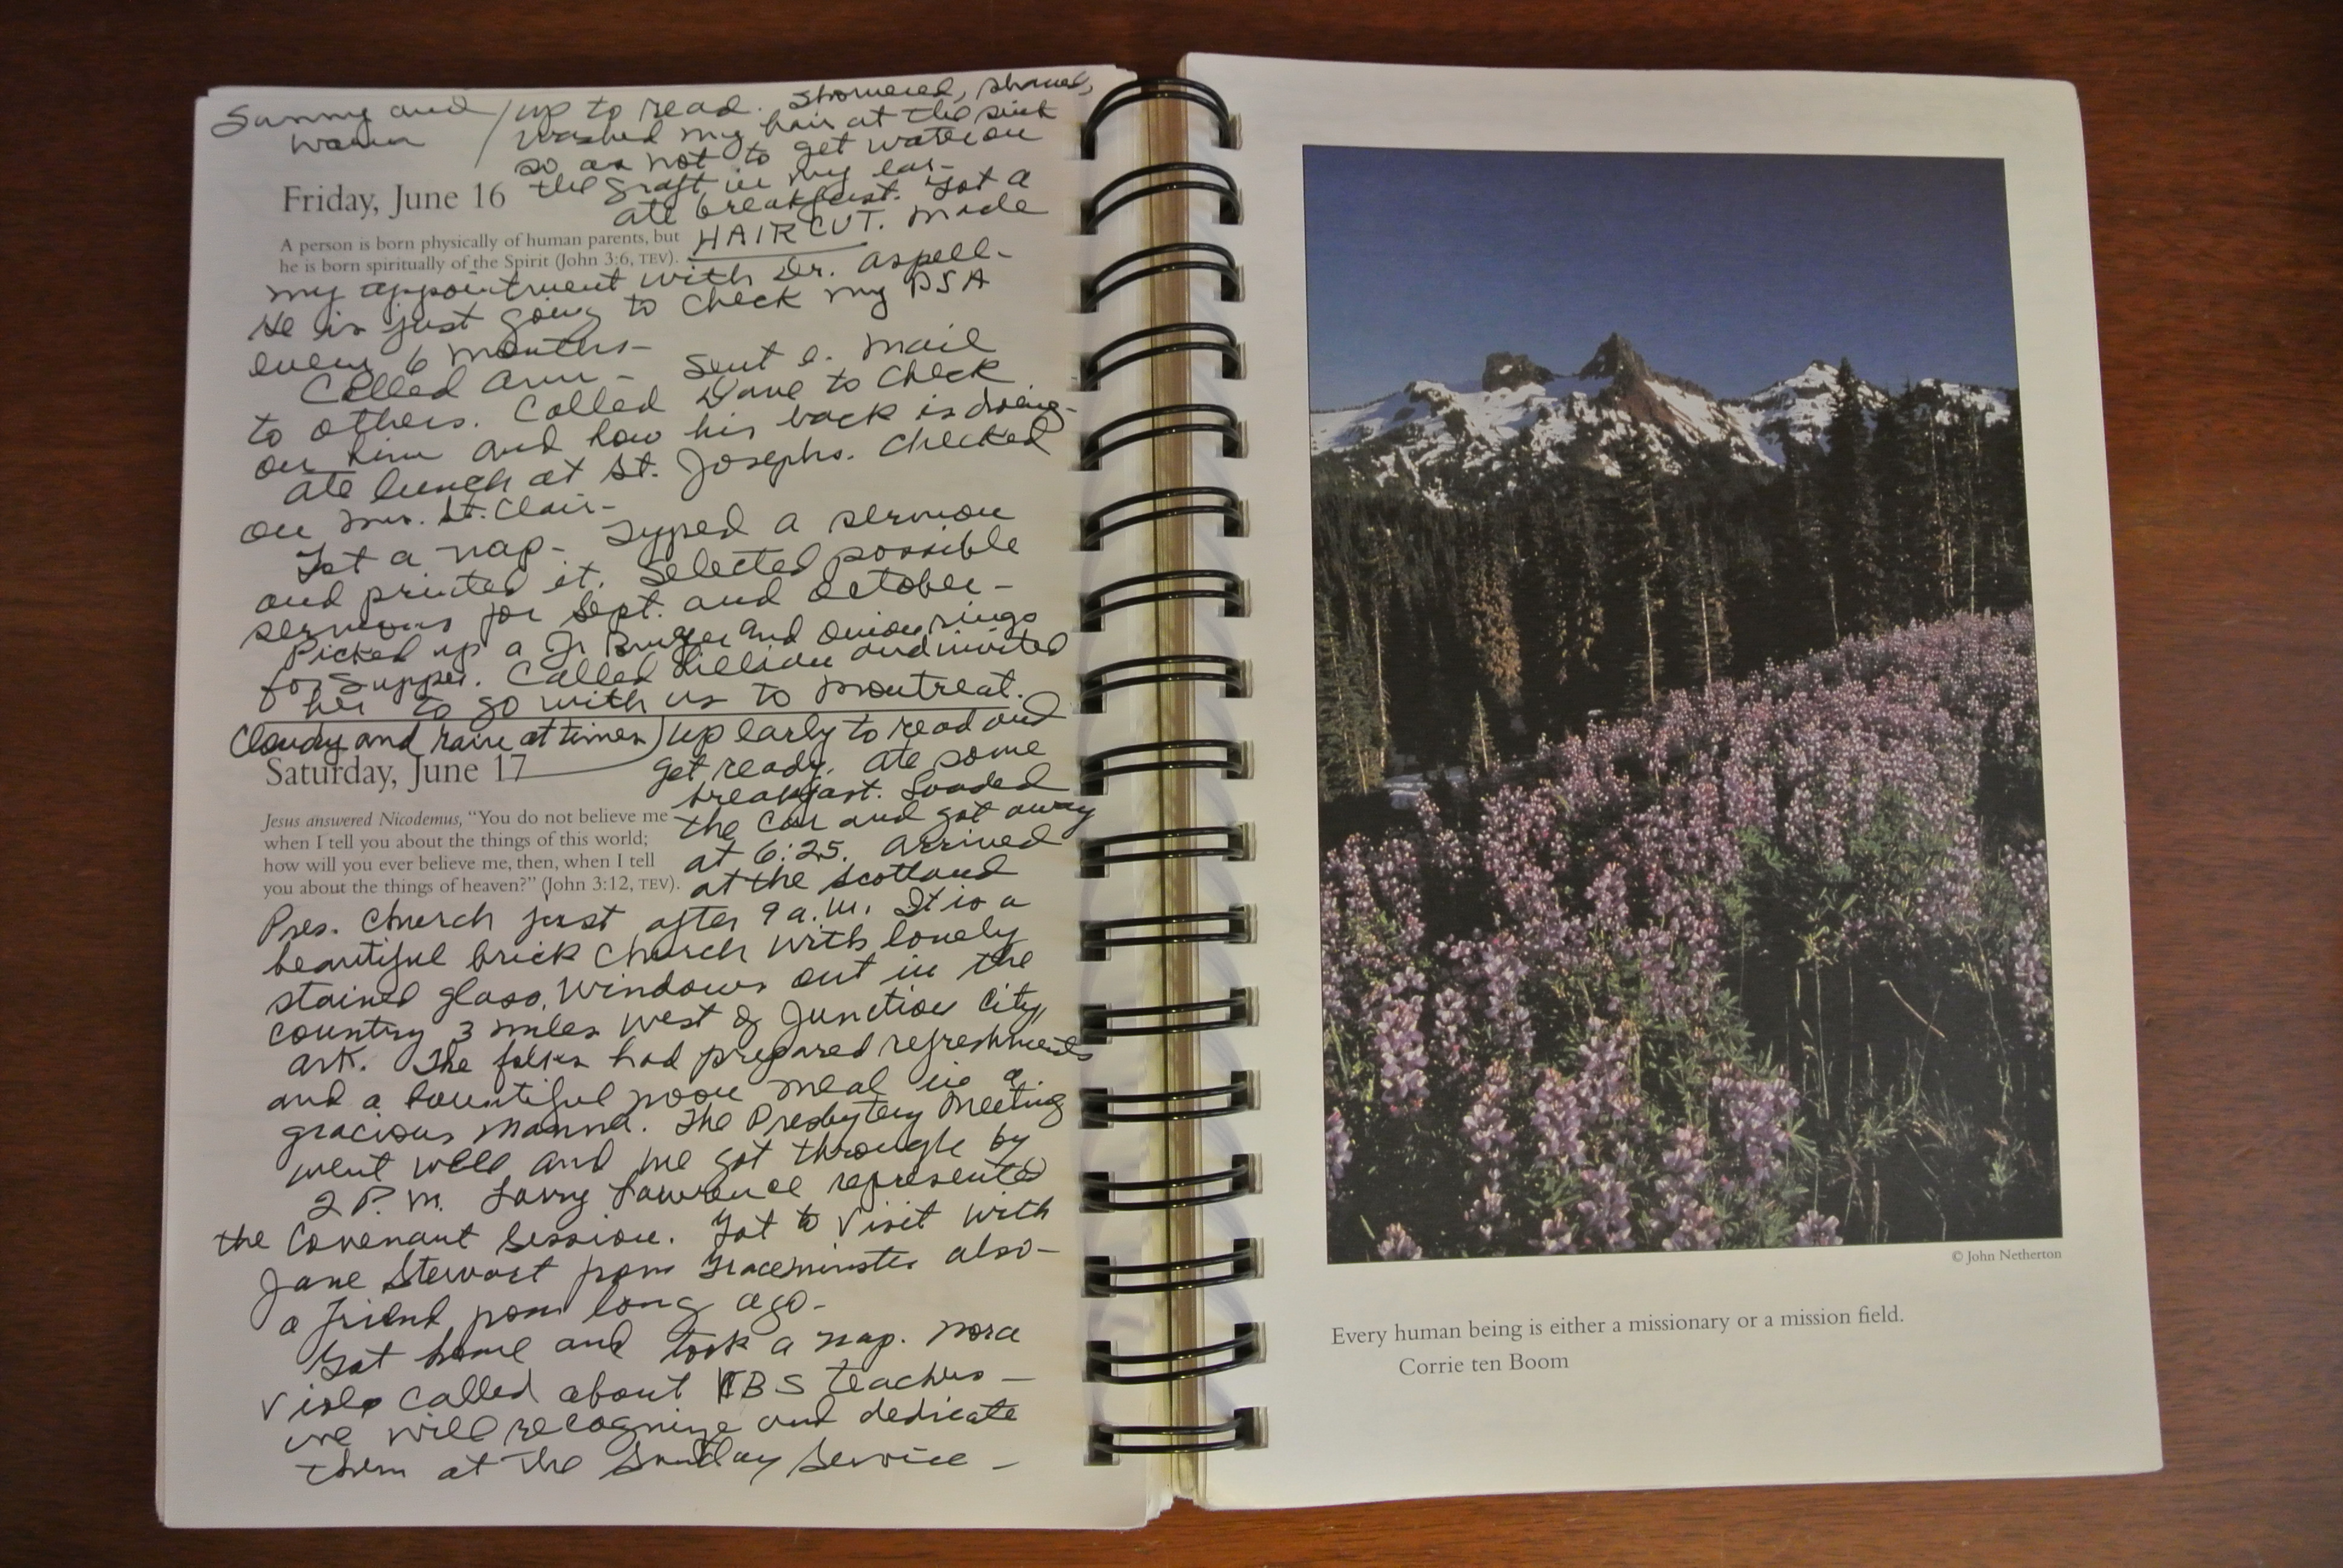 Sunny and / up to read. Showered, shaved,
warm / washed my hair at the sink
so as not to get water on
Friday, June 16 the graft in my ear-
ate breakfast. Got a
A person is born physically of human parents, but HAIRCUT. Made
he is born spiritually of the Spirit (John 3:6, TEV).
my appointment with Dr. Aspell-
He is just going to check my PSA
every 6 months-
Called Ann - Sent e. mail
to others. Called Dave to check
on him and how his back is doing-
ate lunch at St. Josephs. Checked
on Mrs. St. Clair-
Got a nap- Typed a sermon
and printed it. Selected possible
sermons for Sept. and October-
Picked up a Jr Burger and onion rings
for supper. Called Lillian and invited
her to go with us to Montreat.
Cloudy and rain at times) up early to read and
Saturday, June 17 get ready. Ate some
breakfast. Loaded
Jesus answered Nicodemus, “You do not believe me the car and got away
when I tell you about the things of this world; at 6:25. Arrived
how will you ever believe me, then, when I tell
you about the things of heaven?” (John 3:12, TEV). at the Scotland
Pres. Church just after 9 a.m. It is a
beautiful brick church with lovely
stained glass windows out in the
country 3 miles west of Junction City,
Ark. The folks had prepared refreshments
and a bountiful noon meal in a
gracious manner. The Presbytery Meeting
went well and we got through by
2 P.M. Larry Lawrence represented
the Covenant Session. Got to visit with
Jane Stewart from also-
a friend from long ago-
Got home and took a nap. Nora
Viola called about VBS teachers-
we will recognize and dedicate
them at the Sunday Service-
© John Netherton
Every human being is either a missionary or a mission field.
Corrie ten Boom